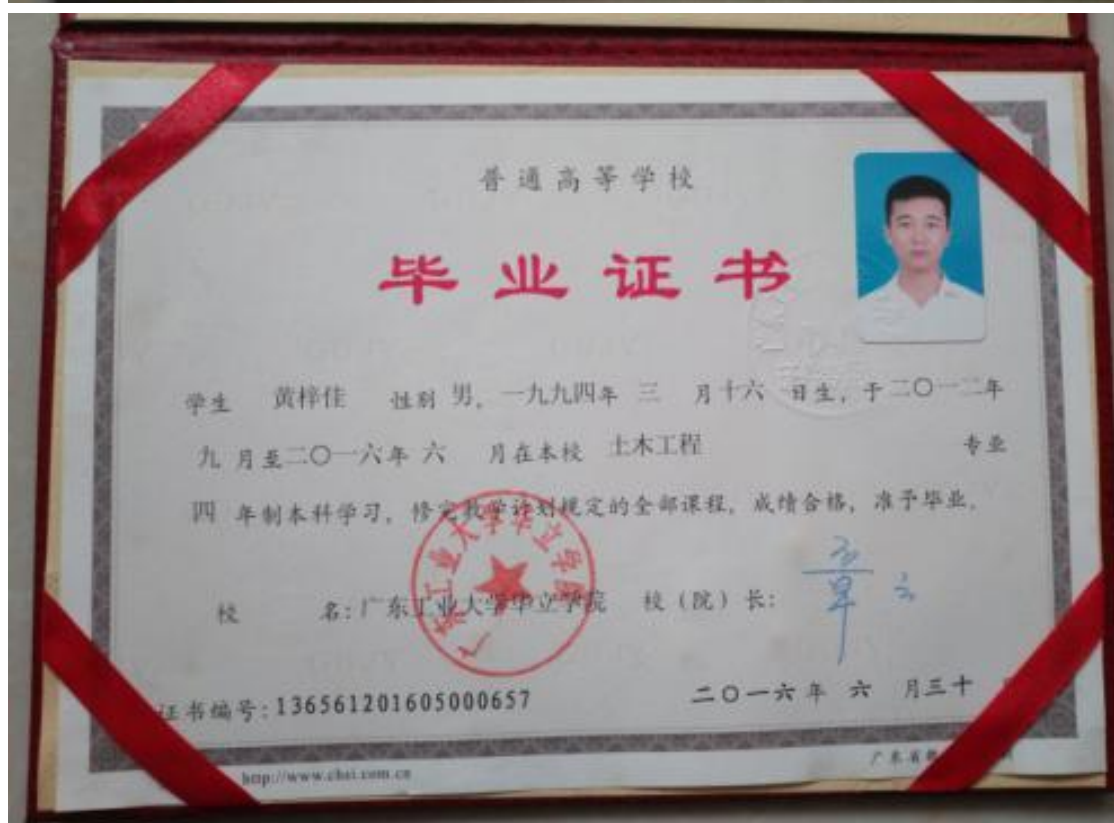 普通高等学校
毕业证书
学生 黄梓佳 性别 男，一九九四年 三 月十六 日生，于二〇一二年
九 月至二〇一六年 六 月在本校 土木工程 专业
四 年制本科学习，修完教学计划规定的全部课程，成绩合格，准予毕业。
校 名：广东工业大学华立学院 校（院）长：
广东工业大学华立学院
证书编号：136561201605000657
二〇一六年 六 月三十
http://www.chsi.com.cn
广东省